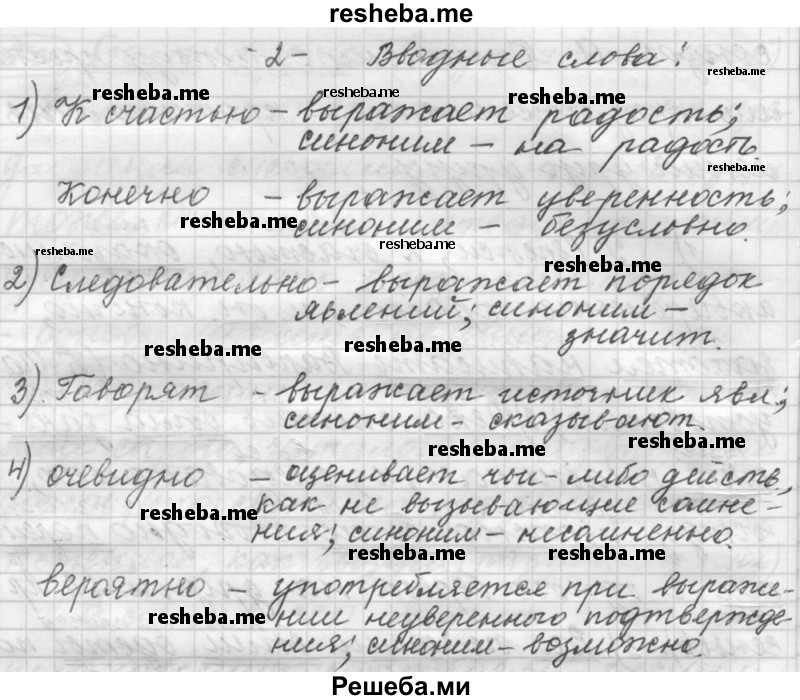 resheba.me
- 2 - Вводные слова!
resheba.me
1) К счастью - выражает радость;
resheba.me resheba.me resheba.me
синоним - на радость.
resheba.me
Конечно - выражает уверенность;
resheba.me
синоним - безусловно.
resheba.me
resheba.me
resheba.me
2) Следовательно - выражает порядок
явлений; синоним -
значит.
resheba.me resheba.me
3) Говорят - выражает источник явл;
синоним - сказывают.
resheba.me resheba.me
4) очевидно - оценивает чьи-либо действ,
как не вызывающие сомне-
resheba.me
ния; синоним - несомненно.
resheba.me resheba.me
вероятно - употребляется при выраже-
resheba.me
нии неуверенного подтвержде-
ния; синоним - возможно.
Решеба.ми